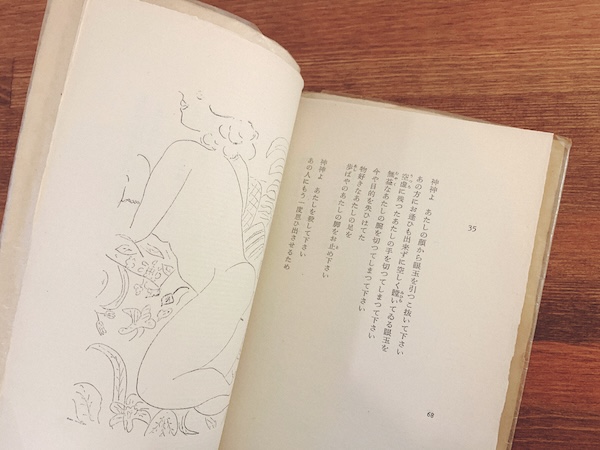 35
神神よ　あたしの顔から眼玉を引つこ抜いて下さい
あの方にお逢ひも出来ずに空しく瞠いてゐる眼玉を
空虚に残つたあたしの手を切つてしまつて下さい
無益なあたしの腕を切つてしまつて下さい
今や目的を失ひはてた
物好きなあたしの足を
歩ばやのあたしの脚をお止め下さい
神神よ　あたしを愛して下さい
あの人にもう一度思ひ出させるため
68
moon